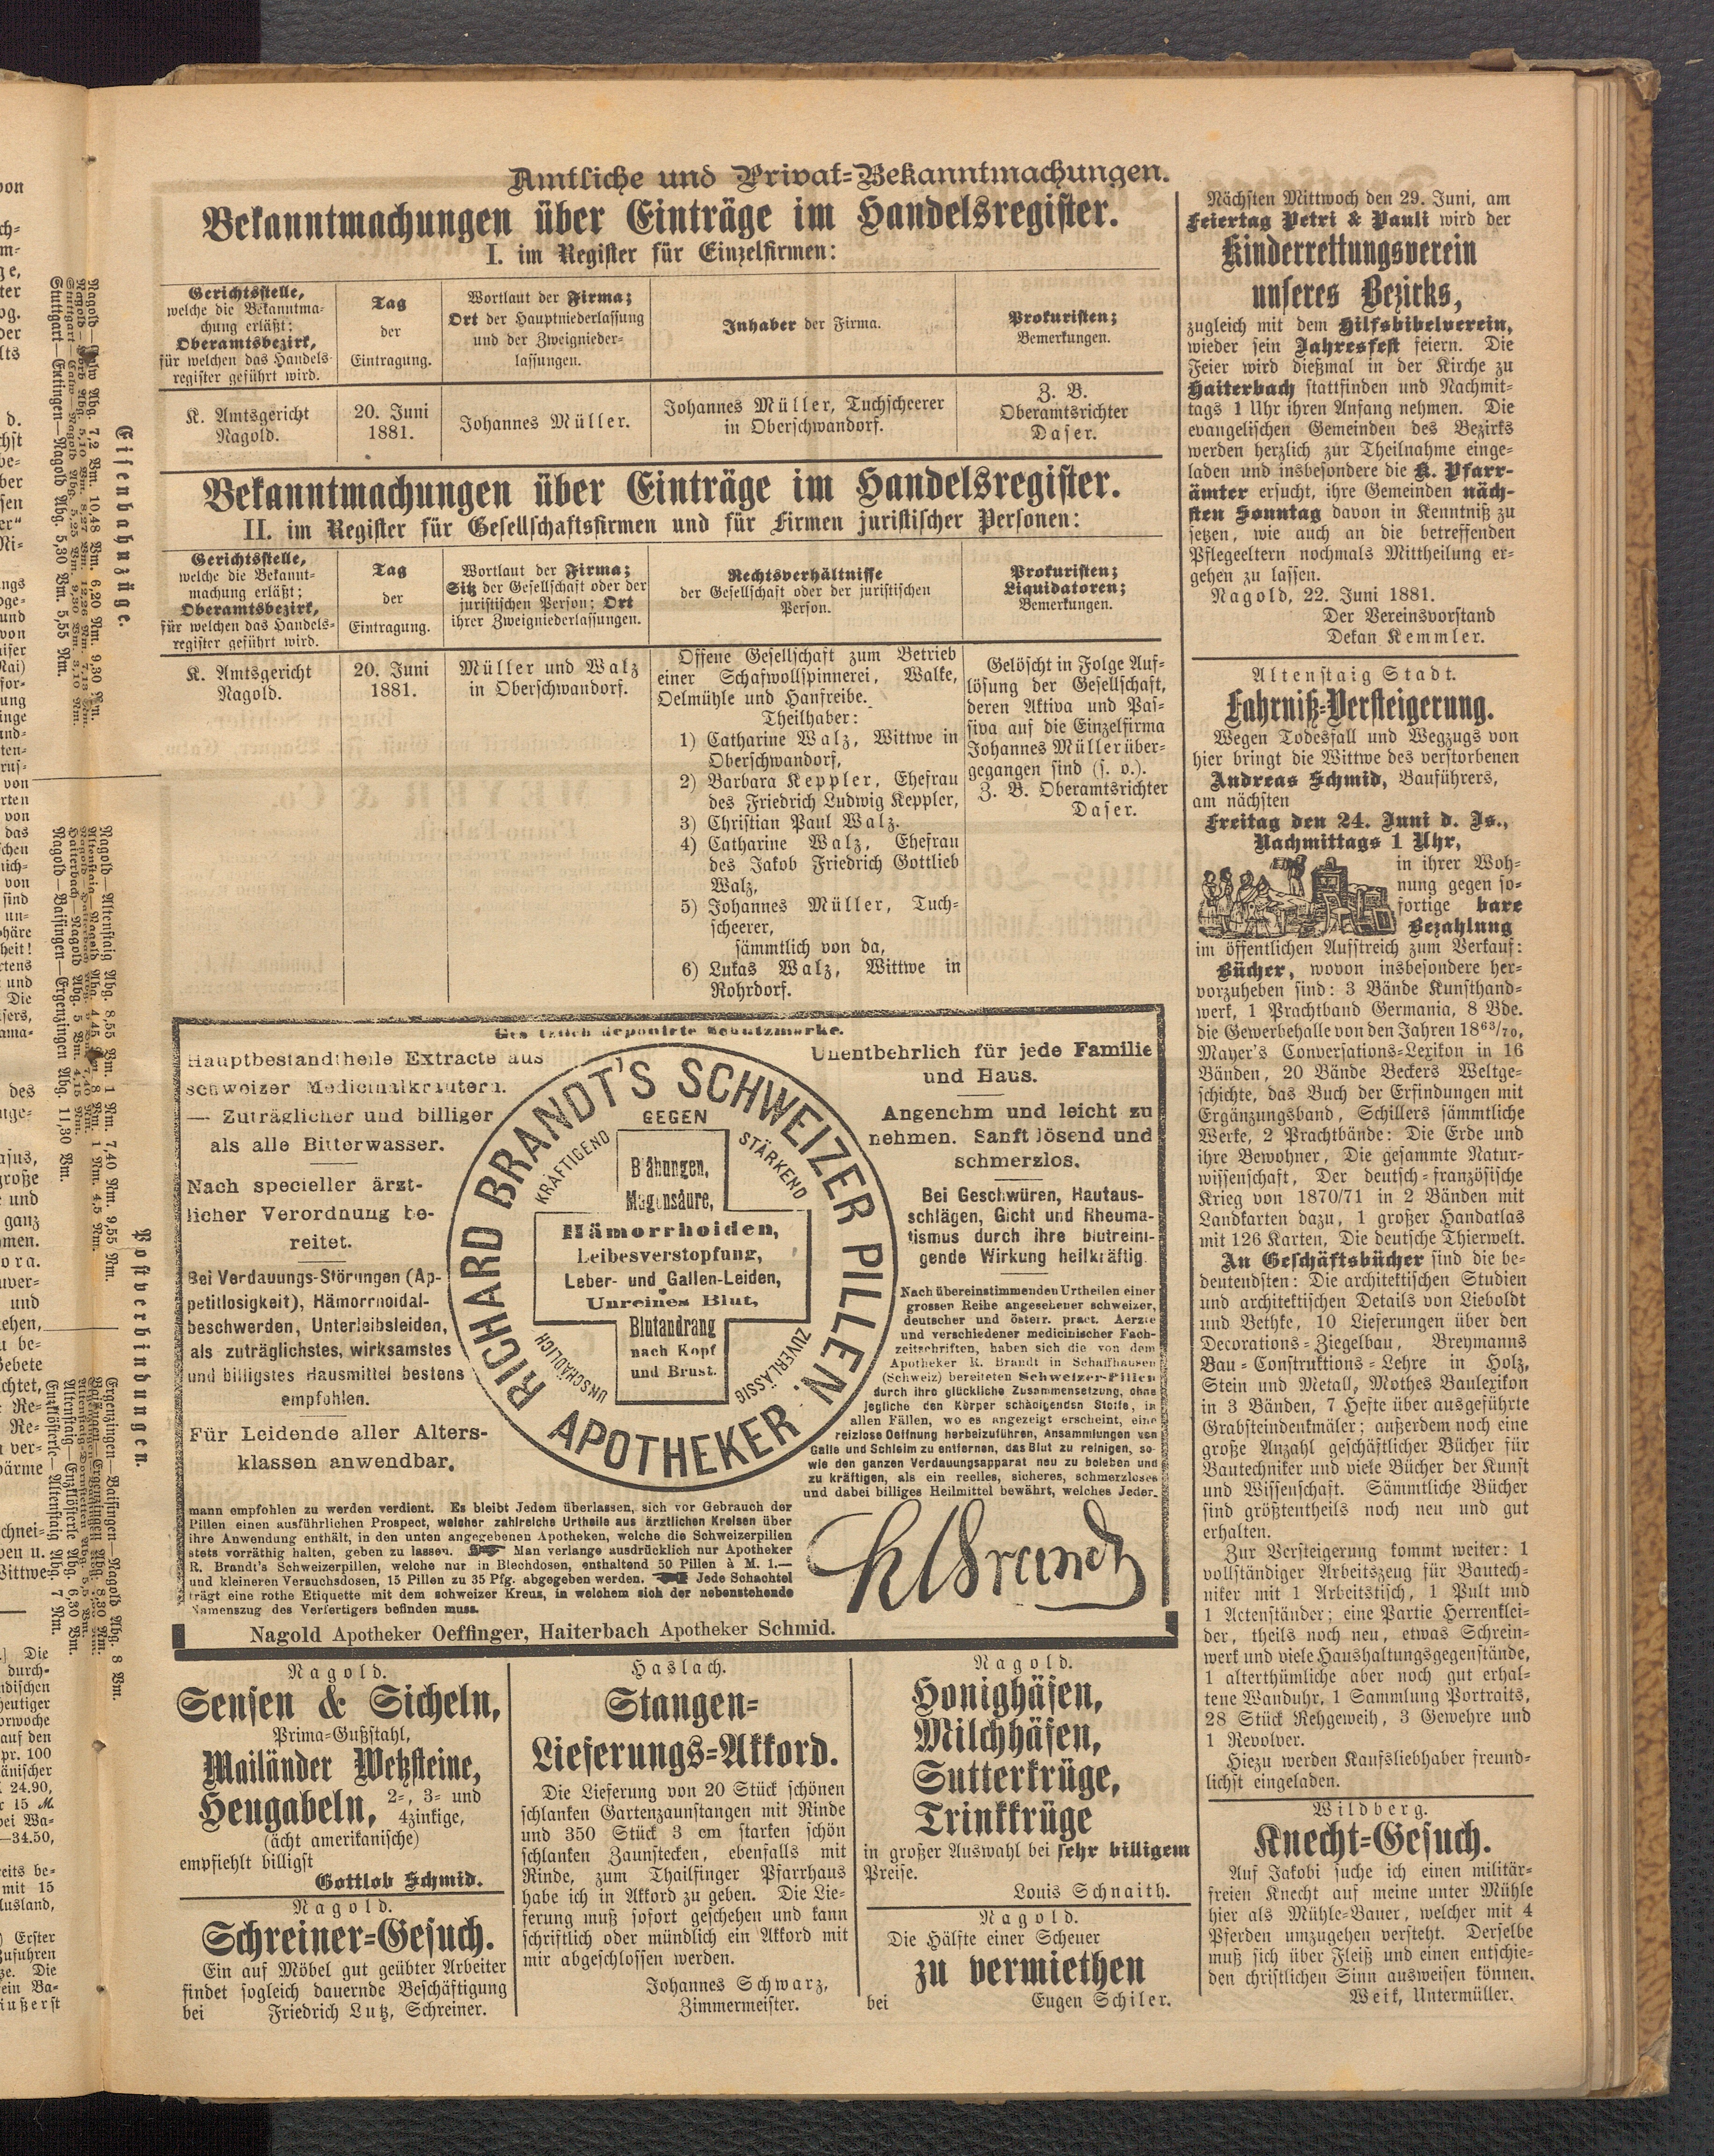 Amtliche und Privat-Bekanntmachungen.
Bekanntmachungen über Einträge im Handelsregister.
I. im Register für Einzelfirmen:
Gerichtsstelle,
welche die Bekanntma-
chung erläßt;
Oberamtsbezirk,
für welchen das Handels-
register geführt wird.
Tag
der
Eintragung.
Wortlaut der Firma;
Ort der Hauptniederlassung
und der Zweignieder-
lassungen.
Inhaber der Firma.
Prokuristen;
Bemerkungen.
K. Amtsgericht
Nagold.
20. Juni
1881.
Johannes Müller.
Johannes Müller, Tuchscheerer
in Oberschwandorf.
Z. B.
Oberamtsrichter
Daser.
Bekanntmachungen über Einträge im Handelsregister.
II. im Register für Gesellschaftsfirmen und für Firmen juristischer Personen:
Gerichtsstelle,
welche die Bekannt-
machung erläßt;
Oberamtsbezirk,
für welchen das Handels-
register geführt wird.
Tag
der
Eintragung.
Wortlaut der Firma;
Sitz der Gesellschaft oder der
juristischen Person; Ort
ihrer Zweigniederlassungen.
Rechtsverhältnisse
der Gesellschaft oder der juristischen
Person.
Prokuristen;
Liquidatoren;
Bemerkungen.
K. Amtsgericht
Nagold.
20. Juni
1881.
Müller und Walz
in Oberschwandorf.
Offene Gesellschaft zum Betrieb
einer Schafwollspinnerei, Walke,
Oelmühle und Hanfreibe.
Theilhaber:
1) Catharine Walz, Wittwe in
Oberschwandorf,
2) Barbara Keppler, Ehefrau
des Friedrich Ludwig Keppler,
3) Christian Paul Walz.
4) Catharine Walz, Ehefrau
des Jakob Friedrich Gottlieb
Walz,
5) Johannes Müller, Tuch-
scheerer,
sämmtlich von da,
6) Lukas Walz, Wittwe in
Rohrdorf.
Gelöscht in Folge Auf-
lösung der Gesellschaft,
deren Aktiva und Pas-
siva auf die Einzelfirma
Johannes Müller über-
gegangen sind (s. o.).
Z. B. Oberamtsrichter
Daser.
deponirte Schutzmarke.
Hauptbestandtheile Extracte aus
schweizer Medicinalkräutern.
— Zuträglicher und billiger
als alle Bitterwasser.
Nach specieller ärzt-
licher Verordnung be-
reitet.
Bei Verdauungs-Störungen (Ap-
petitlosigkeit), Hämorrhoidal-
beschwerden, Unterleibsleiden,
als zuträglichstes, wirksamstes
und billigstes Hausmittel bestens
empfohlen.
Für Leidende aller Alters-
klassen anwendbar.
APOTHEKER RICHARD BRANDT'S SCHWEIZER PILLEN.
GEGEN
KRÄFTIGEND
STÄRKEND
UNSCHÄDLICH
ZUVERLÄSSIG
Blähungen,
Magensäure,
Hämorrhoiden,
Leibesverstopfung,
Leber- und Gallen-Leiden,
Unreines Blut,
Blutandrang
nach Kopf
und Brust.
Unentbehrlich für jede Familie
und Haus.
Angenehm und leicht zu
nehmen. Sanft lösend und
schmerzlos.
Bei Geschwüren, Hautaus-
schlägen, Gicht und Rheuma-
tismus durch ihre blutreini-
gende Wirkung heilkräftig.
Nach übereinstimmenden Urtheilen einer
grossen Reihe angesehener schweizer,
deutscher und österr. pract. Aerzte
und verschiedener medicinischer Fach-
zeitschriften, haben sich die von dem
Apotheker R. Brandt in Schaffhausen
(Schweiz) bereiteten Schweizer-Pillen
durch ihre glückliche Zusammensetzung, ohne
jegliche den Körper schädigenden Stoffe, in
allen Fällen, wo es angezeigt erscheint, eine
reizlose Oeffnung herbeizuführen, Ansammlungen von
Galle und Schleim zu entfernen, das Blut zu reinigen, so-
wie den ganzen Verdauungsapparat neu zu beleben und
zu kräftigen, als ein reelles, sicheres, schmerzloses
und dabei billiges Heilmittel bewährt, welches Jeder-
mann empfohlen zu werden verdient. Es bleibt Jedem überlassen, sich vor Gebrauch der
Pillen einen ausführlichen Prospect, welcher zahlreiche Urtheile aus ärztlichen Kreisen über
ihre Anwendung enthält, in den unten angegebenen Apotheken, welche die Schweizerpillen
stets vorräthig halten, geben zu lassen. Man verlange ausdrücklich nur Apotheker
R. Brandt's Schweizerpillen, welche nur in Blechdosen, enthaltend 50 Pillen à M. 1.—
und kleineren Versuchsdosen, 15 Pillen zu 35 Pfg. abgegeben werden. Jede Schachtel
trägt eine rothe Etiquette mit dem schweizer Kreuz, in welchem sich der nebenstehende
Namenszug des Verfertigers befinden muss.
Nagold Apotheker Oeffinger, Haiterbach Apotheker Schmid.
Nagold.
Sensen & Sicheln,
Prima-Gußstahl,
Mailänder Wetzsteine,
Heugabeln, 2-, 3- und
4zinkige,
(ächt amerikanische)
empfiehlt billigst
Gottlob Schmid.
Nagold.
Schreiner-Gesuch.
Ein auf Möbel gut geübter Arbeiter
findet sogleich dauernde Beschäftigung
bei Friedrich Lutz, Schreiner.
Haslach.
Stangen-
Lieferungs-Akkord.
Die Lieferung von 20 Stück schönen
schlanken Gartenzaunstangen mit Rinde
und 350 Stück 3 cm starken schön
schlanken Zaunstecken, ebenfalls mit
Rinde, zum Thailfinger Pfarrhaus
habe ich in Akkord zu geben. Die Lie-
ferung muß sofort geschehen und kann
schriftlich oder mündlich ein Akkord mit
mir abgeschlossen werden.
Johannes Schwarz,
Zimmermeister.
Nagold.
Honighäfen,
Milchhäfen,
Sutterkrüge,
Trinkkrüge
in großer Auswahl bei sehr billigem
Preise.
Louis Schnaith.
Nagold.
Die Hälfte einer Scheuer
zu vermiethen
bei Eugen Schiler.
Nächsten Mittwoch den 29. Juni, am
Feiertag Petri & Pauli wird der
Kinderrettungsverein
unseres Bezirks,
zugleich mit dem Hilfsbibelverein,
wieder sein Jahresfest feiern. Die
Feier wird dießmal in der Kirche zu
Haiterbach stattfinden und Nachmit-
tags 1 Uhr ihren Anfang nehmen. Die
evangelischen Gemeinden des Bezirks
werden herzlich zur Theilnahme einge-
laden und insbesondere die K. Pfarr-
ämter ersucht, ihre Gemeinden näch-
sten Sonntag davon in Kenntniß zu
setzen, wie auch an die betreffenden
Pflegeeltern nochmals Mittheilung er-
gehen zu lassen.
Nagold, 22. Juni 1881.
Der Vereinsvorstand
Dekan Kemmler.
Altenstaig Stadt.
Fahrniß-Versteigerung.
Wegen Todesfall und Wegzugs von
hier bringt die Wittwe des verstorbenen
Andreas Schmid, Bauführers,
am nächsten
Freitag den 24. Juni d. Js.,
Nachmittags 1 Uhr,
in ihrer Woh-
nung gegen so-
fortige bare
Bezahlung
im öffentlichen Aufstreich zum Verkauf:
Bücher, wovon insbesondere her-
vorzuheben sind: 3 Bände Kunsthand-
werk, 1 Prachtband Germania, 8 Bde.
die Gewerbehalle von den Jahren 1863/70,
Mayer's Conversations-Lexikon in 16
Bänden, 20 Bände Beckers Weltge-
schichte, das Buch der Erfindungen mit
Ergänzungsband, Schillers sämmtliche
Werke, 2 Prachtbände: Die Erde und
ihre Bewohner, Die gesammte Natur-
wissenschaft, Der deutsch-französische
Krieg von 1870/71 in 2 Bänden mit
Landkarten dazu, 1 großer Handatlas
mit 126 Karten, Die deutsche Thierwelt.
An Geschäftsbücher sind die be-
deutendsten: Die architektischen Studien
und architektischen Details von Lieboldt
und Bethke, 10 Lieferungen über den
Decorations-Ziegelbau, Breymanns
Bau-Construktions-Lehre in Holz,
Stein und Metall, Mothes Baulexikon
in 3 Bänden, 7 Hefte über ausgeführte
Grabsteindenkmäler; außerdem noch eine
große Anzahl geschäftlicher Bücher für
Bautechniker und viele Bücher der Kunst
und Wissenschaft. Sämmtliche Bücher
sind größtentheils noch neu und gut
erhalten.
Zur Versteigerung kommt weiter: 1
vollständiger Arbeitszeug für Bautech-
niker mit 1 Arbeitstisch, 1 Pult und
1 Actenständer; eine Partie Herrenklei-
der, theils noch neu, etwas Schrein-
werk und viele Haushaltungsgegenstände,
1 alterthümliche aber noch gut erhal-
tene Wanduhr, 1 Sammlung Portraits,
28 Stück Rehgeweih, 3 Gewehre und
1 Revolver.
Hiezu werden Kaufsliebhaber freund-
lichst eingeladen.
Wildberg.
Knecht-Gesuch.
Auf Jakobi suche ich einen militär-
freien Knecht auf meine unter Mühle
hier als Mühle-Bauer, welcher mit 4
Pferden umzugehen versteht. Derselbe
muß sich über Fleiß und einen entschie-
den christlichen Sinn ausweisen können.
Weik, Untermüller.
Eisenbahnzüge.
Postverbindungen.